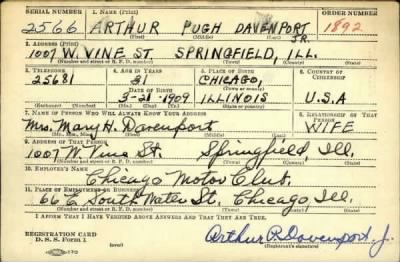 SERIAL NUMBER 1. NAME (Print) ORDER NUMBER
2566 ARTHUR PUGH DAVENPORT JR. 1892
(First) (Middle) (Last)
2. ADDRESS (Print)
1007 W. VINE ST. SPRINGFIELD, ILL.
(Number and street or R. F. D. number) (Town) (County) (State)
3. TELEPHONE 4. AGE IN YEARS 5. PLACE OF BIRTH 6. COUNTRY OF CITIZENSHIP
25681 31 CHICAGO,
DATE OF BIRTH (Town or county)
3-21-1909 ILLINOIS U.S.A
(Exchange) (Number) (Mo.) (Day) (Yr.) (State or country)
7. NAME OF PERSON WHO WILL ALWAYS KNOW YOUR ADDRESS 8. RELATIONSHIP OF THAT PERSON
Mrs. Mary H. Davenport WIFE
(Mr., Mrs., Miss) (First) (Middle) (Last)
9. ADDRESS OF THAT PERSON
1007 W. Vine St. Springfield, Ill.
(Number and street or R. F. D. number) (Town) (County) (State)
10. EMPLOYER'S NAME
Chicago Motor Club.
11. PLACE OF EMPLOYMENT OR BUSINESS
66 E South Water St. Chicago, Ill.
(Number and street or R. F. D. number) (Town) (County) (State)
I AFFIRM THAT I HAVE VERIFIED ABOVE ANSWERS AND THAT THEY ARE TRUE.
REGISTRATION CARD
D. S. S. Form 1 Arthur P. Davenport Jr.
(Registrant's signature)